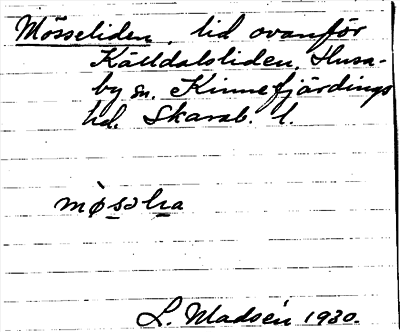 Mösseliden, lid ovanför
Källdalsliden, Husa-
by sn. Kinnefjärdings
hd. Skarab. l.
L. Madsén 1930.